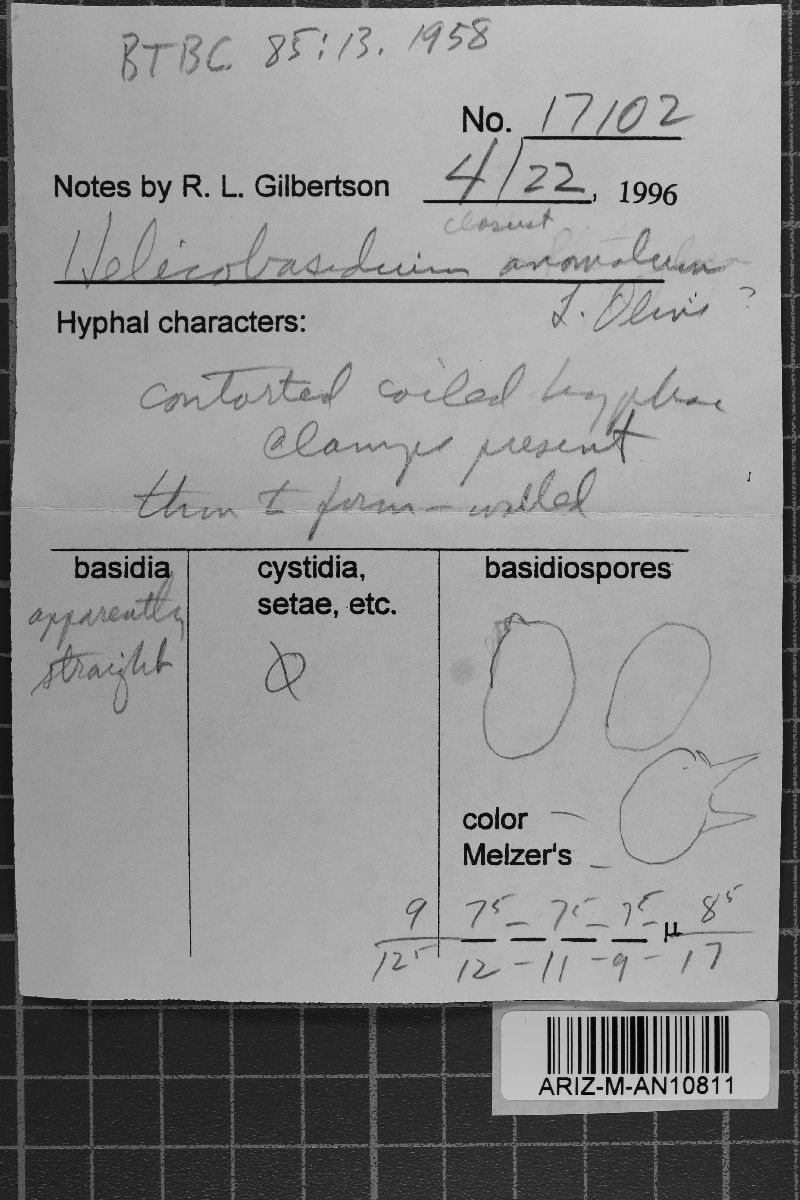 BTBC 85:13. 1958
No. 17102
Notes by R. L. Gilbertson 4/22, 1996
closest
Helicobasidium anomalum
L. Olive ?
Hyphal characters:
contorted coiled hyphae
clamps present
thin to firm-walled
basidia cystidia, setae, etc. basidiospores
apparently
straight
color —
Melzer's —
9 7⁵ – 7⁵ – 7⁵ – µ 8⁵
12⁵ 12 – 11 – 9 – 17
ARIZ-M-AN10811